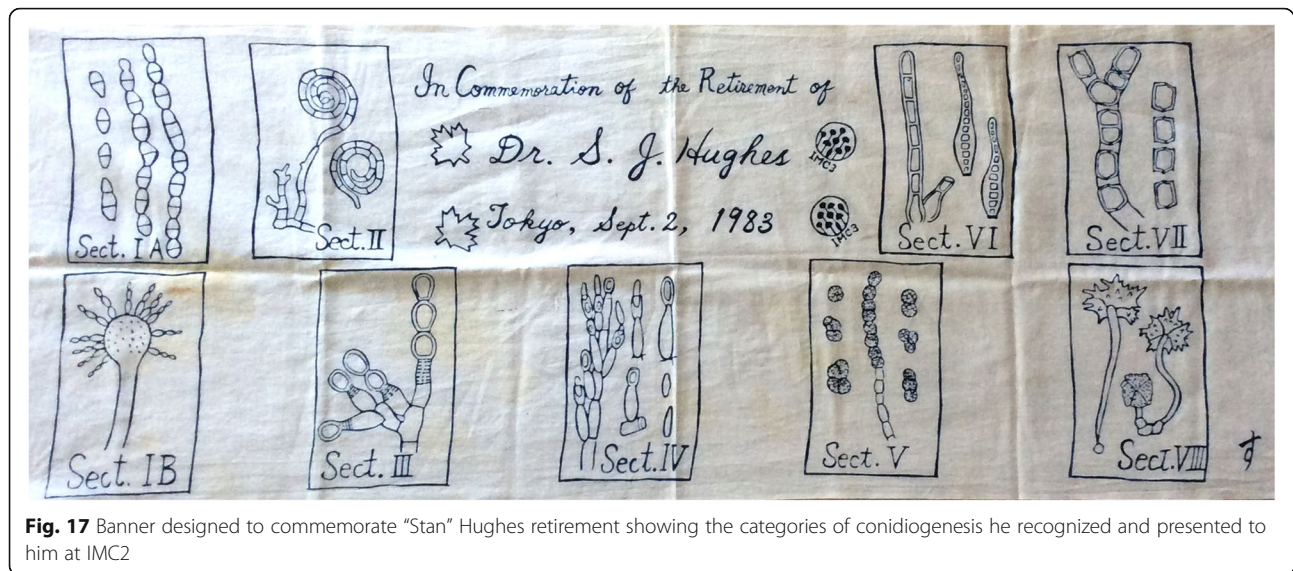 In Commemoration of the Retirement of
Dr. S. J. Hughes
IMC3
Tokyo, Sept. 2, 1983
IMC3
Sect. IA
Sect. II
Sect. VI
Sect. VII
Sect. IB
Sect. III
Sect. IV
Sect. V
Sect. VIII
Fig. 17 Banner designed to commemorate “Stan” Hughes retirement showing the categories of conidiogenesis he recognized and presented to
him at IMC2